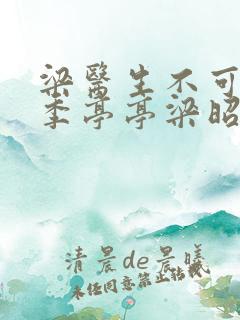 梁醫生不可
季亭亭梁昭
清晨de晨曦
未经同意禁止转载